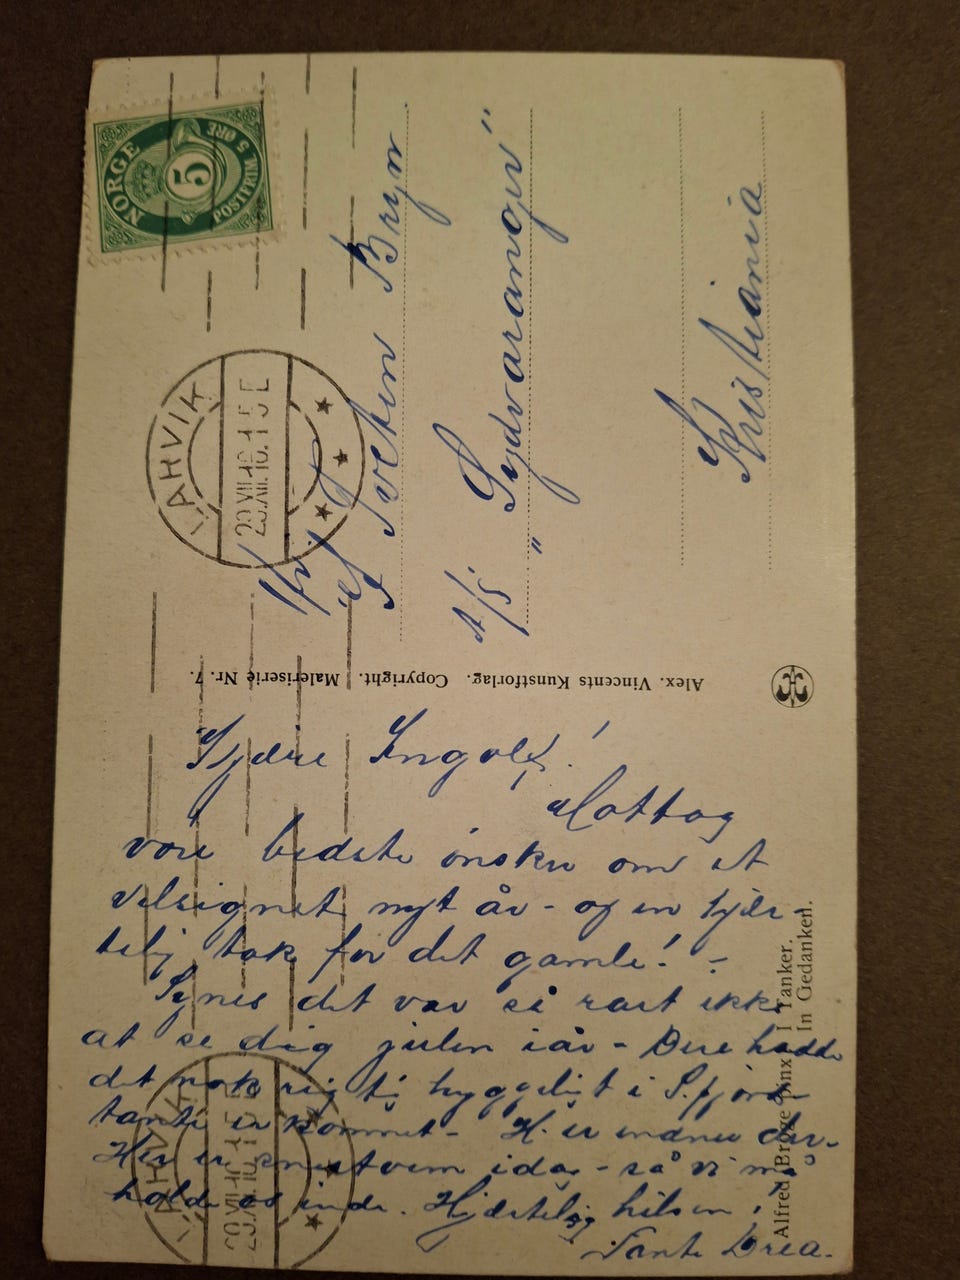 NORGE
5
POSTFRIM. 5 ØRE
LARVIK
29.XII.16. 1-5 E
Hr.
Sven Bryn
A/S
"Sydvaranger"
Kristiania
Alex. Vincents Kunstforlag. Copyright. Maleriserie Nr. 7.
Kjære Ingolf!
Mottag
vore bedste ønsker om et
velsignet nyt år - og en hjer-
telig tak for det gamle! -
Synes det var så rart ikke
at se dig julen iår - Dere hadde
det nok rigtig hyggeligt i S.fjord
tante er kommet - H. er endnu der.
Her er snestorm idag - så vi må
holde os inde. Hjærtelig hilsen
Tante Drea.
LARVIK
29.XII.16. 1-5 E
Alfred Broge pinx. I Tanker.
In Gedanken.